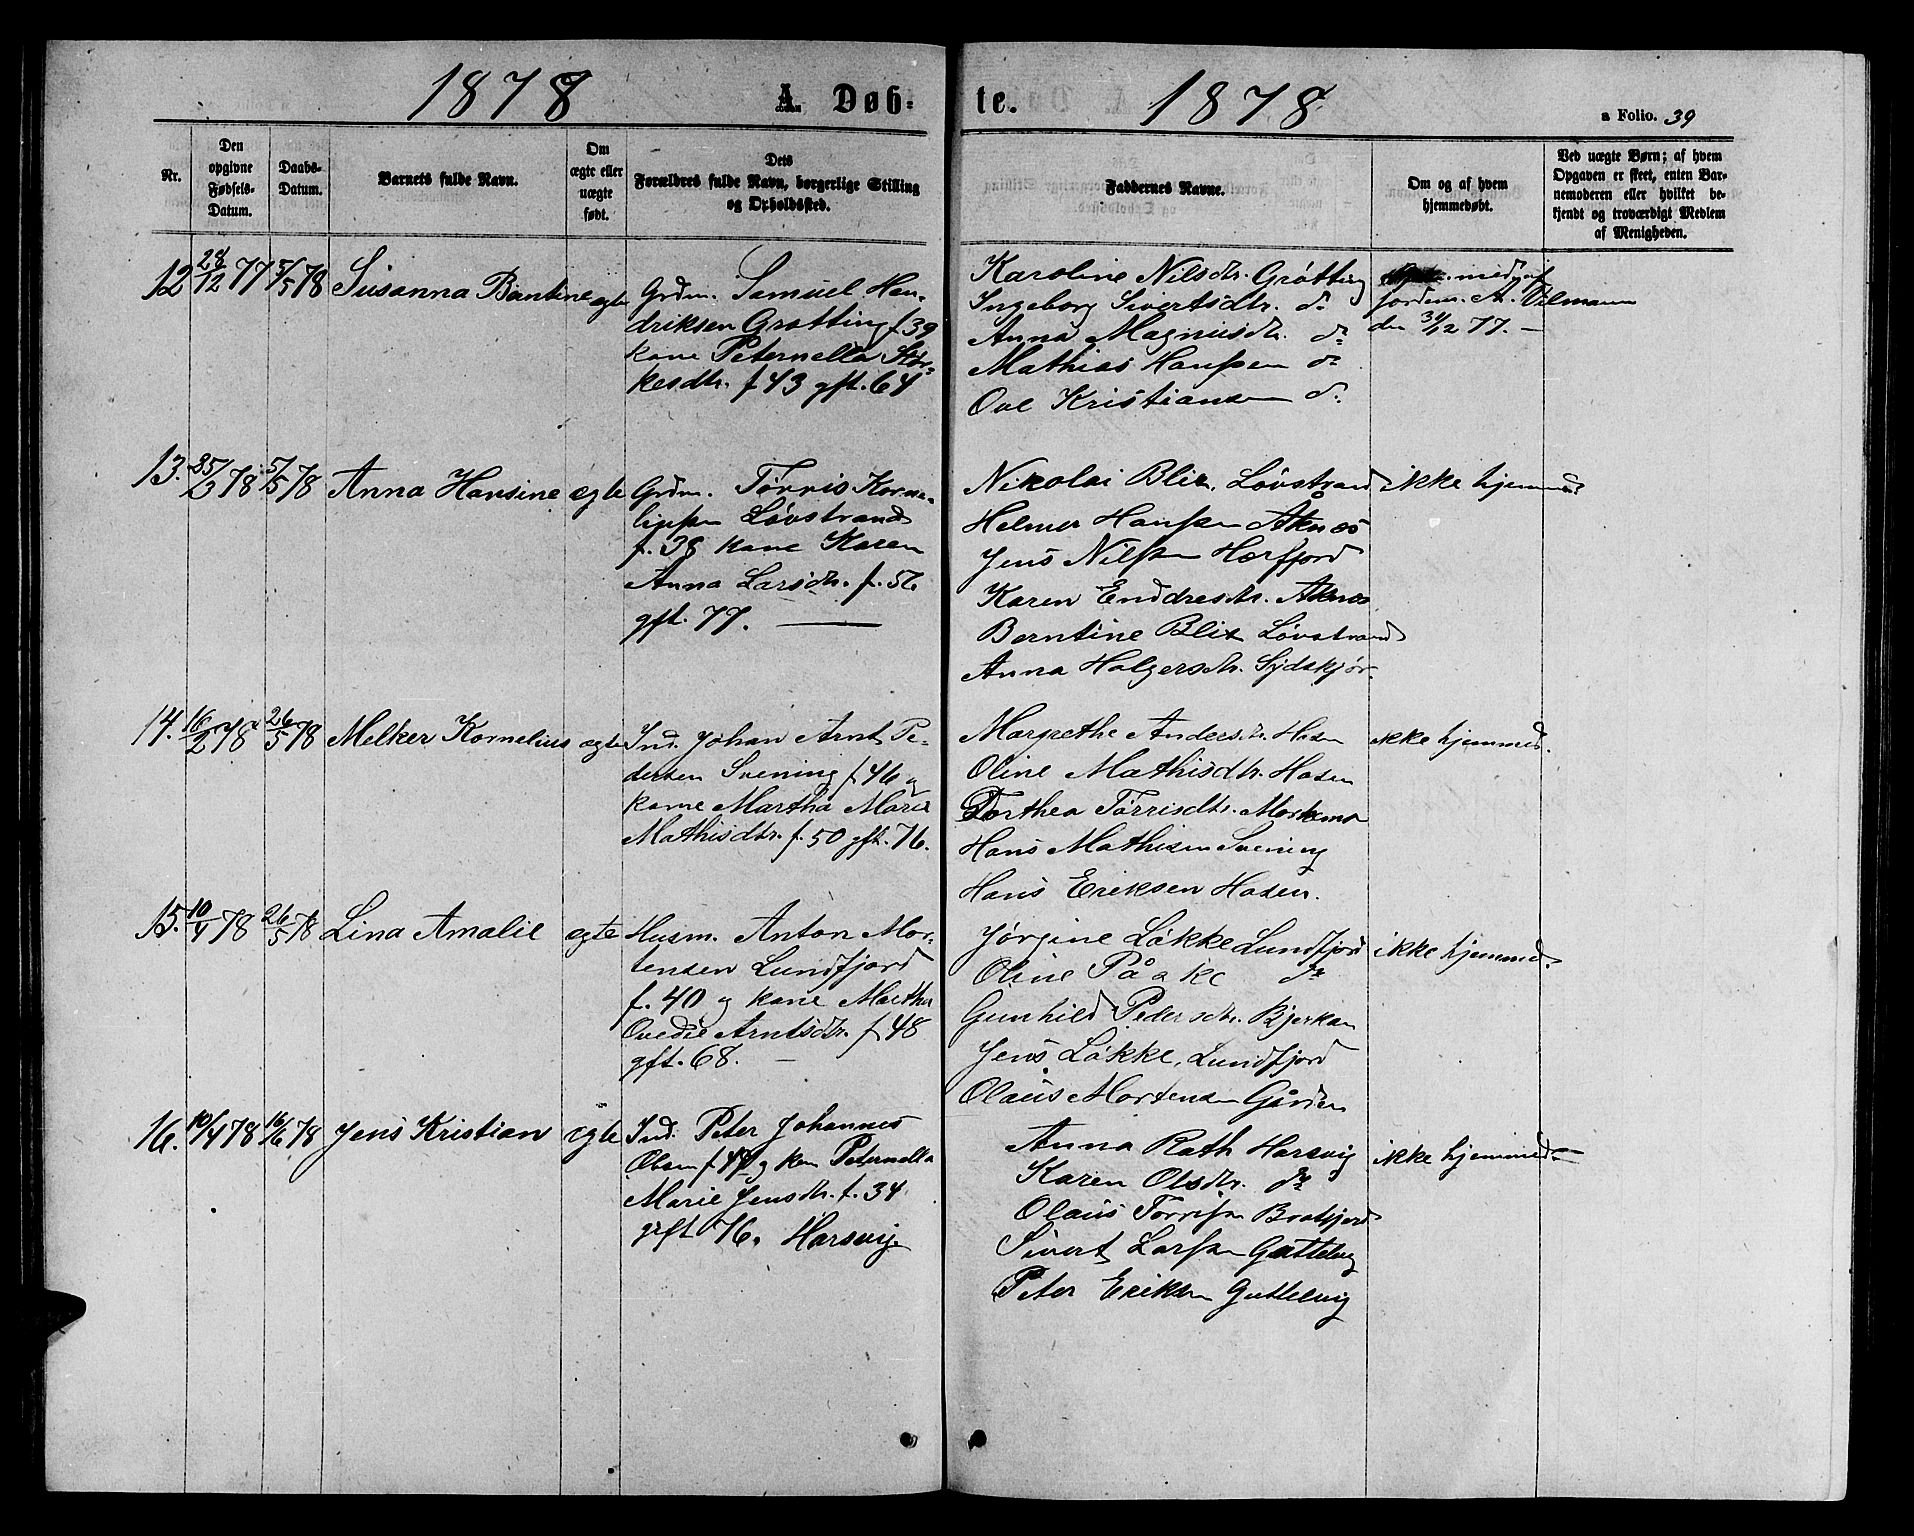 1878 A. Døb-
te. 1878
a Folio. 39
Nr.
Den
opgivne
Fødsels-
Datum.
Daabs-
Datum.
Barnets fulde Navn.
Om
ægte eller
uægte
født.
Dets
Forældres fulde Navn, borgerlige Stilling
og Opholdssted.
Faddernes Navne.
Om og af hvem
hjemmedøbt.
Ved uægte Børn; af hvem
Opgaven er skeet, enten Bar-
nemoderen eller hvilket be-
kjendt og troværdigt Medlem
af Menigheden.
12 28/12 77 5/5 78 Susanna Berntine ægte
Grdm. Samuel Hen-
driksen Grøtting f. 39
kone Peternella
kesdtr. f. 43 gft. 64
Karoline Nilsdtr. Grøtting
Ingeborg Sivertsdtr. do
Anna Magnusdtr. do
Mathias Hanssen do
Ove Kristiansen do
hjemmed. af
jordm. A. Velmann
den 31/12 77. —
13. 25/3 78 5/5 78 Anna Hansine ægte
Grdm. Tørris Korne-
liussen Løvstrand
f. 38 kone Karen
Anna Larsdtr. f. 56
gft. 77. —
Nikolai Blix, Løvstrand
Helmer Hanssen Aknes
Jens Nilssen Hærfjord
Karen Enddresdtr. Aknes
Berntine Blix Løvstrand
Anna Holgersdtr. Sydskjør
ikke hjemmed.
14. 16/2 78 26/5 78 Melker Kornelius ægte
Ind. Johan Arnt Pe-
dersen Svening f. 46 og
kone Martha Marie
Mathisdtr. f. 50 gft. 76.
Margrethe Andersdtr. Hosen
Oline Mathisdtr. Hosen
Dorthea Tørrisdtr. Morkemo
Hans Mathisen Svening
Hans Eriksen Hosen.
ikke hjemmed.
15. 10/4 78 26/5 78 Lina Amalie ægte
Husm. Anton Mor-
tensen Lundfjord
f. 40 og kone Martha
Ovedie Arntsdtr. f. 48
gft. 68. —
Jørgine Løkke Lundfjord
Oline do
Gunhild Pedersdtr. Bjerkan
Jens Løkke, Lundfjord
Olaus Mortensen Gården
ikke hjemmed.
16. 10/4 78 16/6 78 Jens Kristian ægte
Ind. Peter Johannes
Olsen f. 47 og kone Peternella
Marie Jensdtr. f. 34
gift 76. Harsvig
Anna Rath Harsvig
Karen Olsdtr. do
Olaus Tørrissen Bratfjord
Sivert Larssen Guttelvig
Peter Eriksen Guttelvig
ikke hjemmed. —